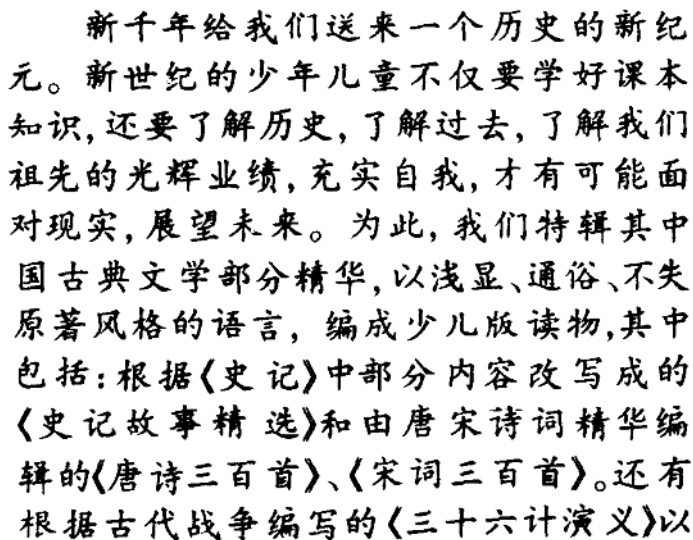 新千年给我们送来一个历史的新纪
元。新世纪的少年儿童不仅要学好课本
知识,还要了解历史,了解过去,了解我们
祖先的光辉业绩,充实自我,才有可能面
对现实,展望未来。为此,我们特辑其中
国古典文学部分精华,以浅显、通俗、不失
原著风格的语言,编成少儿版读物,其中
包括:根据《史记》中部分内容改写成的
《史记故事精选》和由唐宋诗词精华编
辑的《唐诗三百首》、《宋词三百首》。还有
根据古代战争编写的《三十六计演义》以